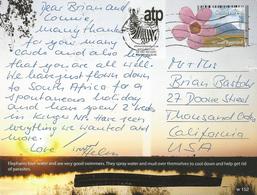 Dear Brian and
Connie,
many thanks
for your many
cards and also
that you are all well.
We have just flown down
to South Africa for a
spontaneous holiday
and than you 2 weeks
in Kruger NP. Have seen
everything we wanted and
more.
Love
atp
Mr + Mrs
Brian Bastow
27 Doone Street
Thousand Oaks
California
USA
Elephants love water and are very good swimmers. They spray water and mud over themselves to cool down and help get rid
of parasites.
w 152